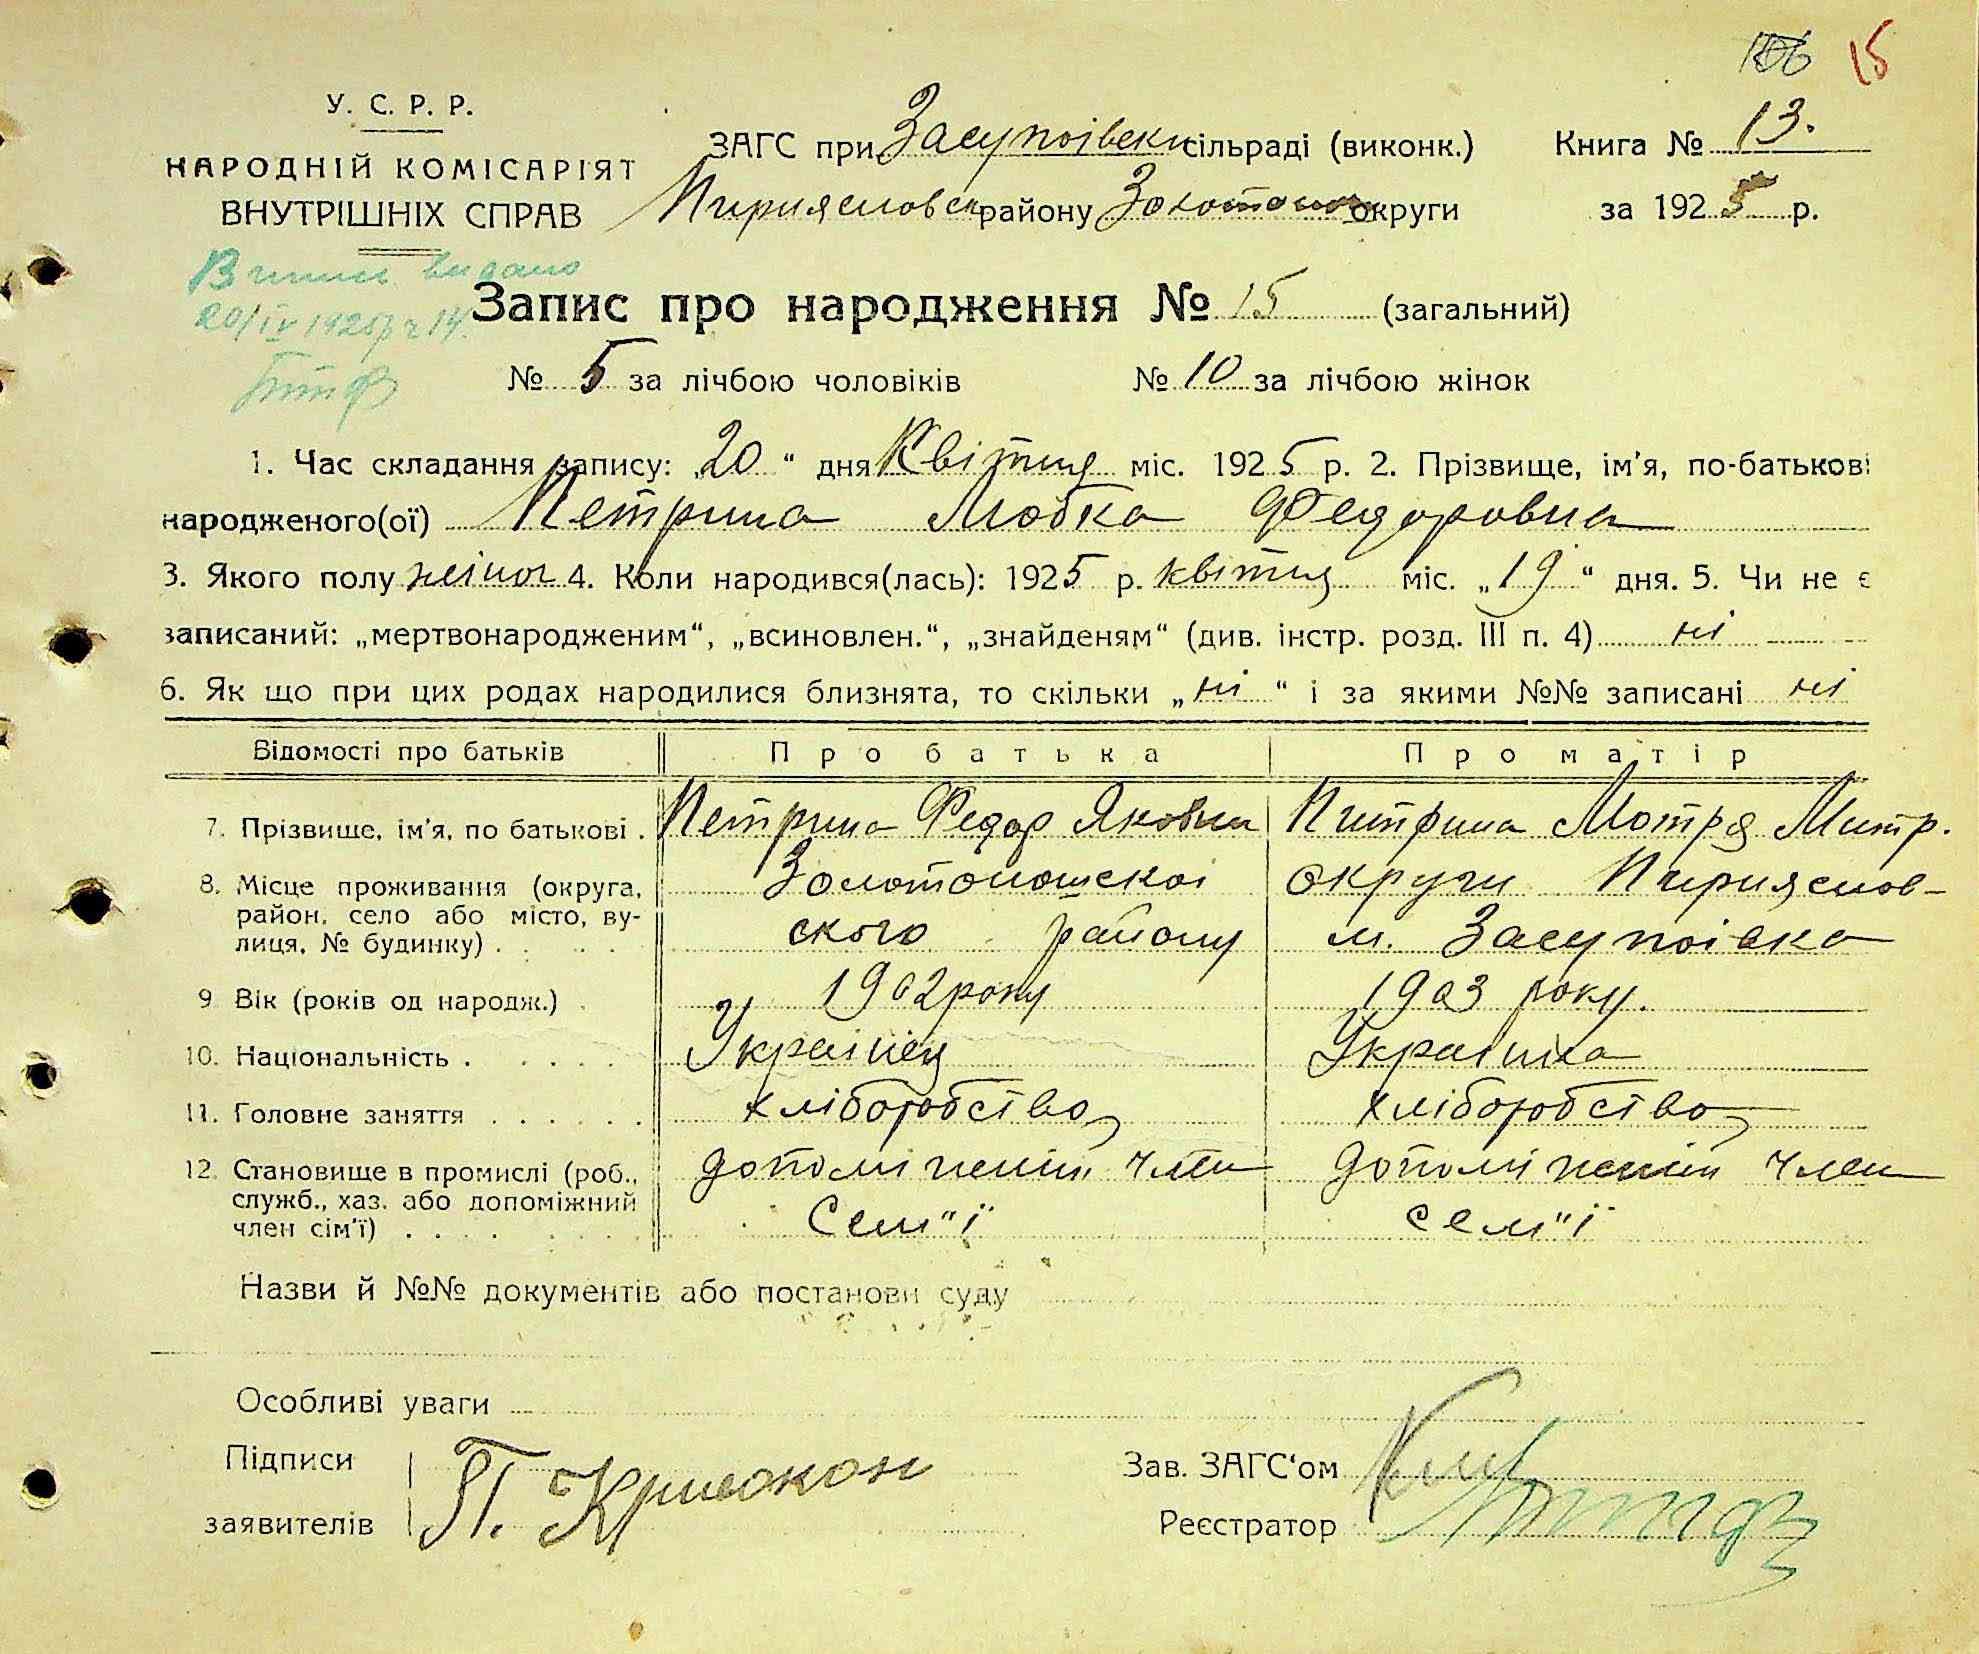 106 15
У. С. Р. Р.
НАРОДНІЙ КОМІСАРІЯТ
ВНУТРІШНІХ СПРАВ
ЗАГС при Засупоівски сільраді (виконк.)
Пирияславск району Золотоно округи
Книга № 13.
за 1925 р.
Випис видано
20/IV 1925р ч 14.
Запис про народження № 15 (загальний)
№ 5 за лічбою чоловіків № 10 за лічбою жінок
1. Час складання запису: „20“ дня Квітня міс. 1925 р. 2. Прізвище, ім'я, по-батькові
народженого(ої) Петрина Любка Федоровна
3. Якого полу жіноч 4. Коли народився(лась): 1925 р. квітня міс. „19“ дня. 5. Чи не є
записаний: „мертвонародженим“, „всиновлен.“, „знайденям“ (див. інстр. розд. III п. 4) ні
6. Як що при цих родах народилися близнята, то скільки „ні“ і за якими №№ записані ні
Відомості про батьків Про батька Про матір
7. Прізвище, ім'я, по батькові . Петрина Федор Якович Питрина Мотря Митр.
8. Місце проживання (округа, Золотоношскоі округи Пирияслов-
район, село або місто, ву- ского району м. Засупоівка
лиця, № будинку) . . . .
9 Вік (років од народж.) . 1902 року 1903 року.
10. Національність . . . . . Украінец Украінка
11. Головне заняття . . . . . . хліборобство хліборобство
12. Становище в промислі (роб., допоміжний член допоміжний член
служб., хаз. або допоміжний Сем"ї сем"ї
член сім'ї) . . . . . . . .
Назви й №№ документів або постанови суду
Особливі уваги
Підписи
заявителів
П.
Зав. ЗАГС'ом
Реєстратор